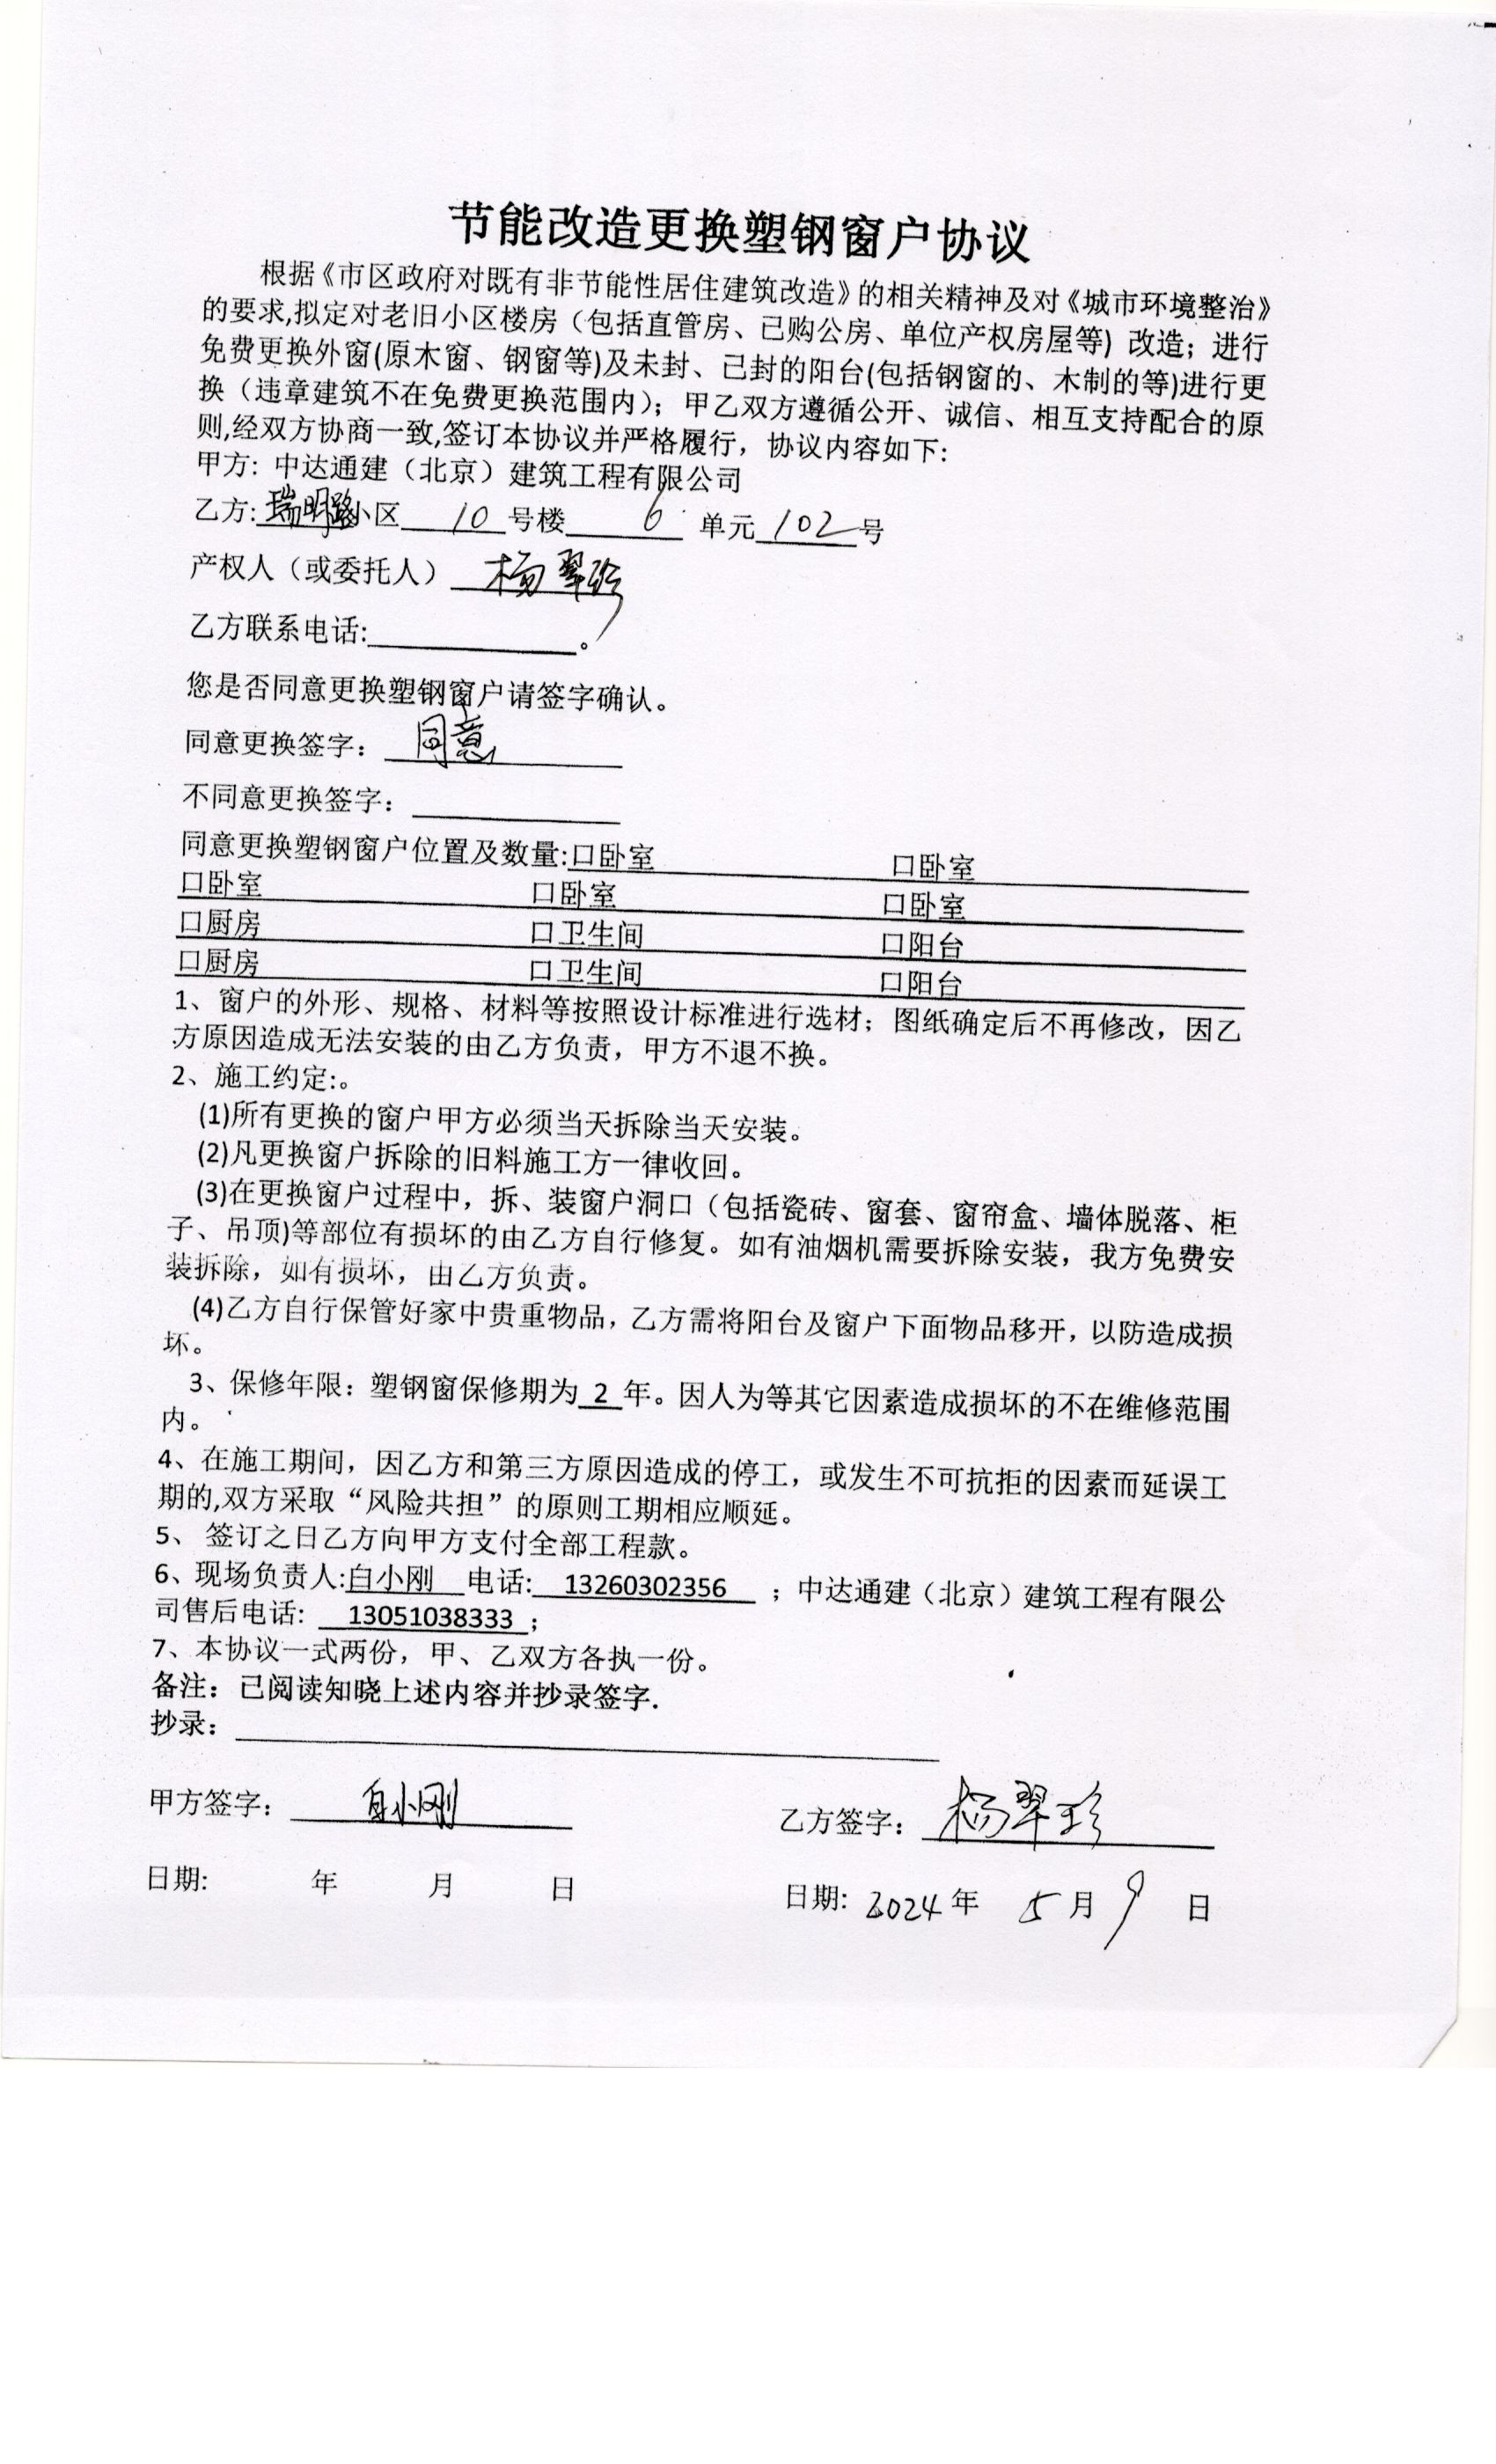 节能改造更换塑钢窗户协议
根据《市区政府对既有非节能性居住建筑改造》的相关精神及对《城市环境整治》
的要求,拟定对老旧小区楼房（包括直管房、已购公房、单位产权房屋等) 改造；进行
免费更换外窗(原木窗、钢窗等)及未封、已封的阳台(包括钢窗的、木制的等)进行更
换（违章建筑不在免费更换范围内)；甲乙双方遵循公开、诚信、相互支持配合的原
则,经双方协商一致,签订本协议并严格履行，协议内容如下:
甲方: 中达通建（北京）建筑工程有限公司
乙方: 瑞明路小区 10 号楼 6 单元 102 号
产权人（或委托人） 杨翠珍
乙方联系电话:__________。
您是否同意更换塑钢窗户请签字确认。
同意更换签字： 同意
不同意更换签字：__________
同意更换塑钢窗户位置及数量:口卧室 口卧室
口卧室 口卧室 口卧室
口厨房 口卫生间 口阳台
口厨房 口卫生间 口阳台
1、窗户的外形、规格、材料等按照设计标准进行选材；图纸确定后不再修改，因乙
方原因造成无法安装的由乙方负责，甲方不退不换。
2、施工约定:。
(1)所有更换的窗户甲方必须当天拆除当天安装。
(2)凡更换窗户拆除的旧料施工方一律收回。
(3)在更换窗户过程中，拆、装窗户洞口（包括瓷砖、窗套、窗帘盒、墙体脱落、柜
子、吊顶)等部位有损坏的由乙方自行修复。如有油烟机需要拆除安装，我方免费安
装拆除，如有损坏，由乙方负责。
(4)乙方自行保管好家中贵重物品，乙方需将阳台及窗户下面物品移开，以防造成损
坏。
3、保修年限：塑钢窗保修期为 2 年。因人为等其它因素造成损坏的不在维修范围
内。
4、在施工期间，因乙方和第三方原因造成的停工，或发生不可抗拒的因素而延误工
期的,双方采取“风险共担”的原则工期相应顺延。
5、 签订之日乙方向甲方支付全部工程款。
6、现场负责人:白小刚 电话: 13260302356 ；中达通建（北京）建筑工程有限公
司售后电话: 13051038333 ；
7、本协议一式两份，甲、乙双方各执一份。
备注：已阅读知晓上述内容并抄录签字.
抄录：__________
甲方签字： 白小刚 乙方签字： 杨翠珍
日期: 年 月 日 日期: 2024 年 5 月 9 日